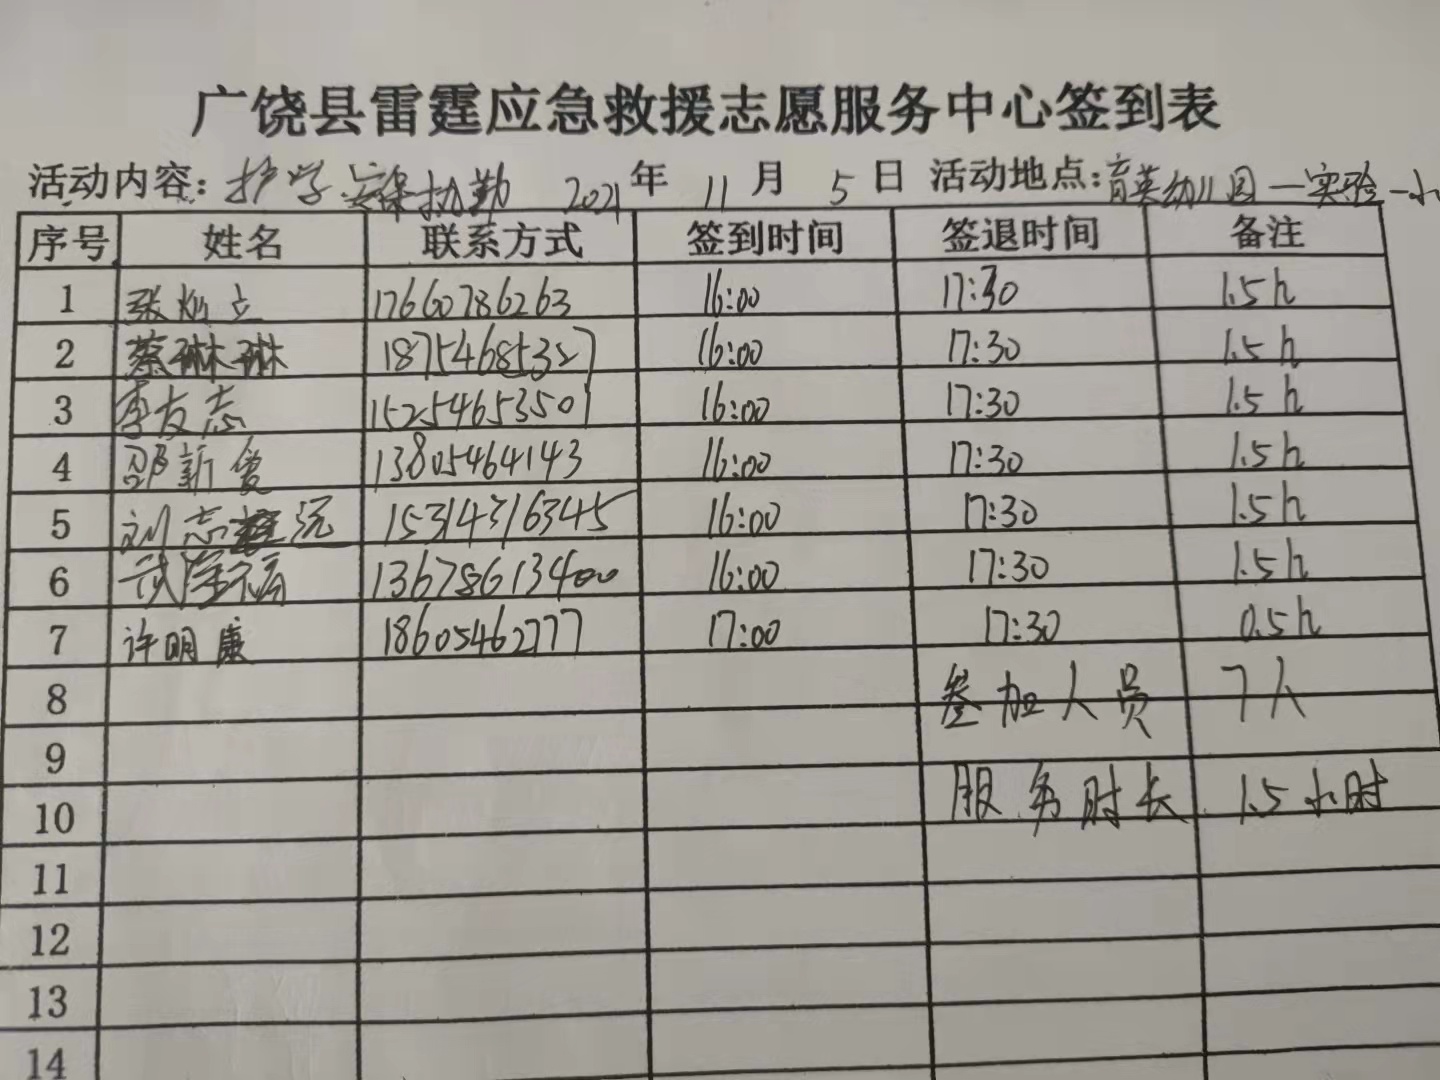 广饶县雷霆应急救援志愿服务中心签到表
活动内容：护学安保执勤 2021年 11月 5日 活动地点：育英幼儿园一实验一小
序号 姓名 联系方式 签到时间 签退时间 备注
1 张灿立 17660786263 16:00 17:30 1.5h
2 蔡琳琳 18754685327 16:00 17:30 1.5h
3 李友志 15254653501 16:00 17:30 1.5h
4 邵新俊 13805464143 16:00 17:30 1.5h
5 刘志远 15314316345 16:00 17:30 1.5h
6 武学福 13678613400 16:00 17:30 1.5h
7 许明康 18605462777 17:00 17:30 0.5h
8 参加人员 7人
9
10 服务时长 1.5小时
11
12
13
14